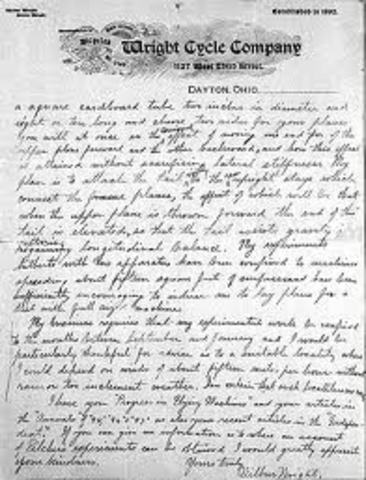 Established in 1892.
Wright Cycle Company
1127 West Third Street.
DAYTON, OHIO.
a square cardboard tube two inches in diameter and
eight or ten long and choose two sides for your planes
you will at once see the effect of moving one end of the
upper plane forward and the other backward, and how this effect
is attained without sacrificing lateral stiffness. My
plan is to attach the tail to the upright stays which
connect the planes, the effect of which will be that
when the upper plane is thrown forward the end of the
tail is elevated, so that the tail assists gravity in
restoring longitudinal balance. My experiments
hitherto with this apparatus have been confined to machines
spreading about fifteen square feet of surface and have been
sufficiently encouraging to induce me to lay plans for a
with full size machine.
My business requires that my experimental work be confined
to the months between September and January and I would be
particularly thankful for advice as to a suitable locality where
I could depend on winds of about fifteen miles per hour without
rain or too inclement weather. I am certain that such localities are rare.
I have your "Progress in Flying Machines" and your articles in
the "Annuals" of as also your recent articles in the
If you can give me information as to where an account
of Pilcher's experiments can be obtained I would greatly appreciate
your kindness.
Yours truly,
Wilbur Wright.